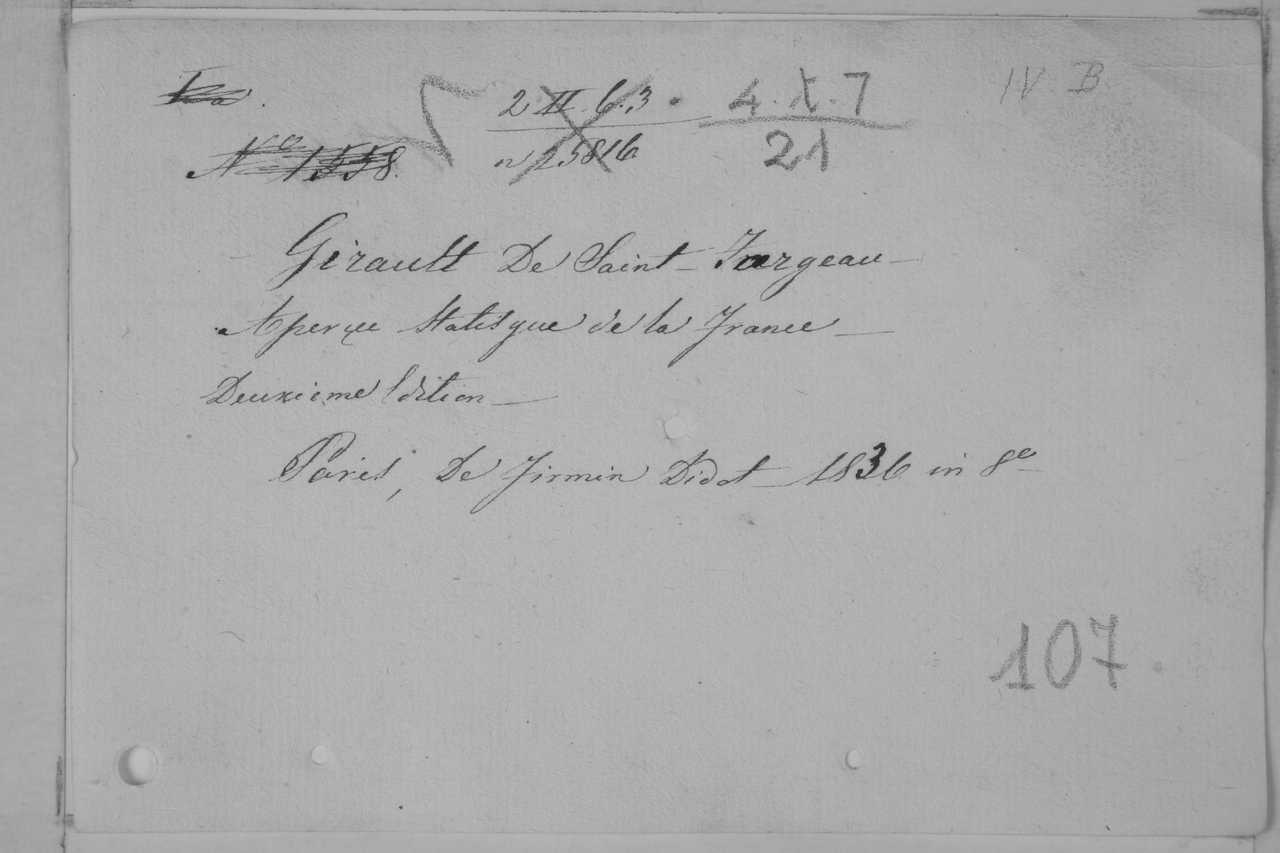 2 II 6.3 . 4.X.7 IV B
No 1558. n 25816 21
Girault De Saint-Fargeau
Aperçu Statisque de la France
Deuxieme Edition
Paris, De Firmin Didot 1836 in 8o
107